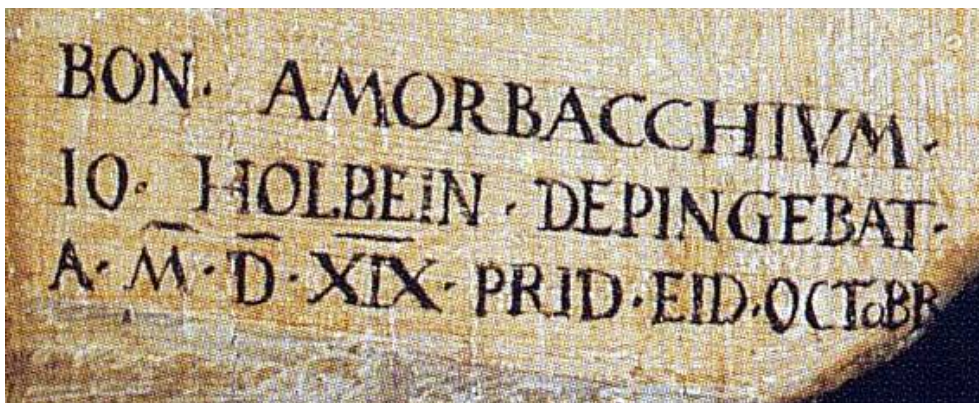 BON. AMORBACCHIVM.
IO. HOLBEIN. DEPINGEBAT.
A. M̅. D̅. X̅I̅X̅. PRID. EID. OCToBR